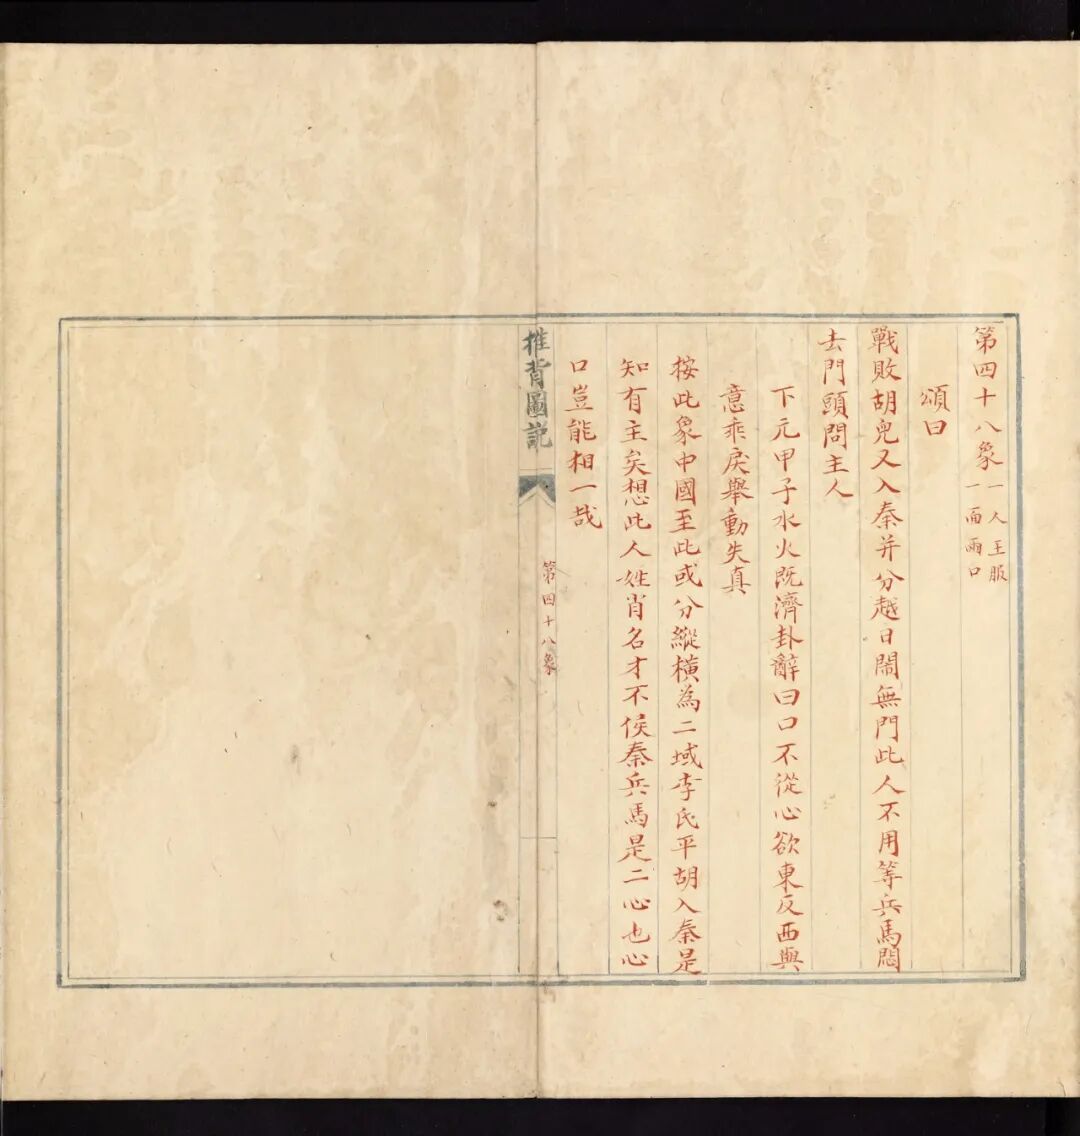 第四十八象
一人王服
一面兩口
頌曰
戰敗胡兇又入秦并分越日鬧無門此人不用等兵馬悶
去門頭問主人
下元甲子水火既濟卦辭曰口不從心欲東反西與
意乖戾舉動失真
按此象中國至此或分縱橫為二域李氏平胡入秦是
知有主矣想此人姓肖名才不俟秦兵馬是二心也心
口豈能相一哉
推背圖說
第四十八象